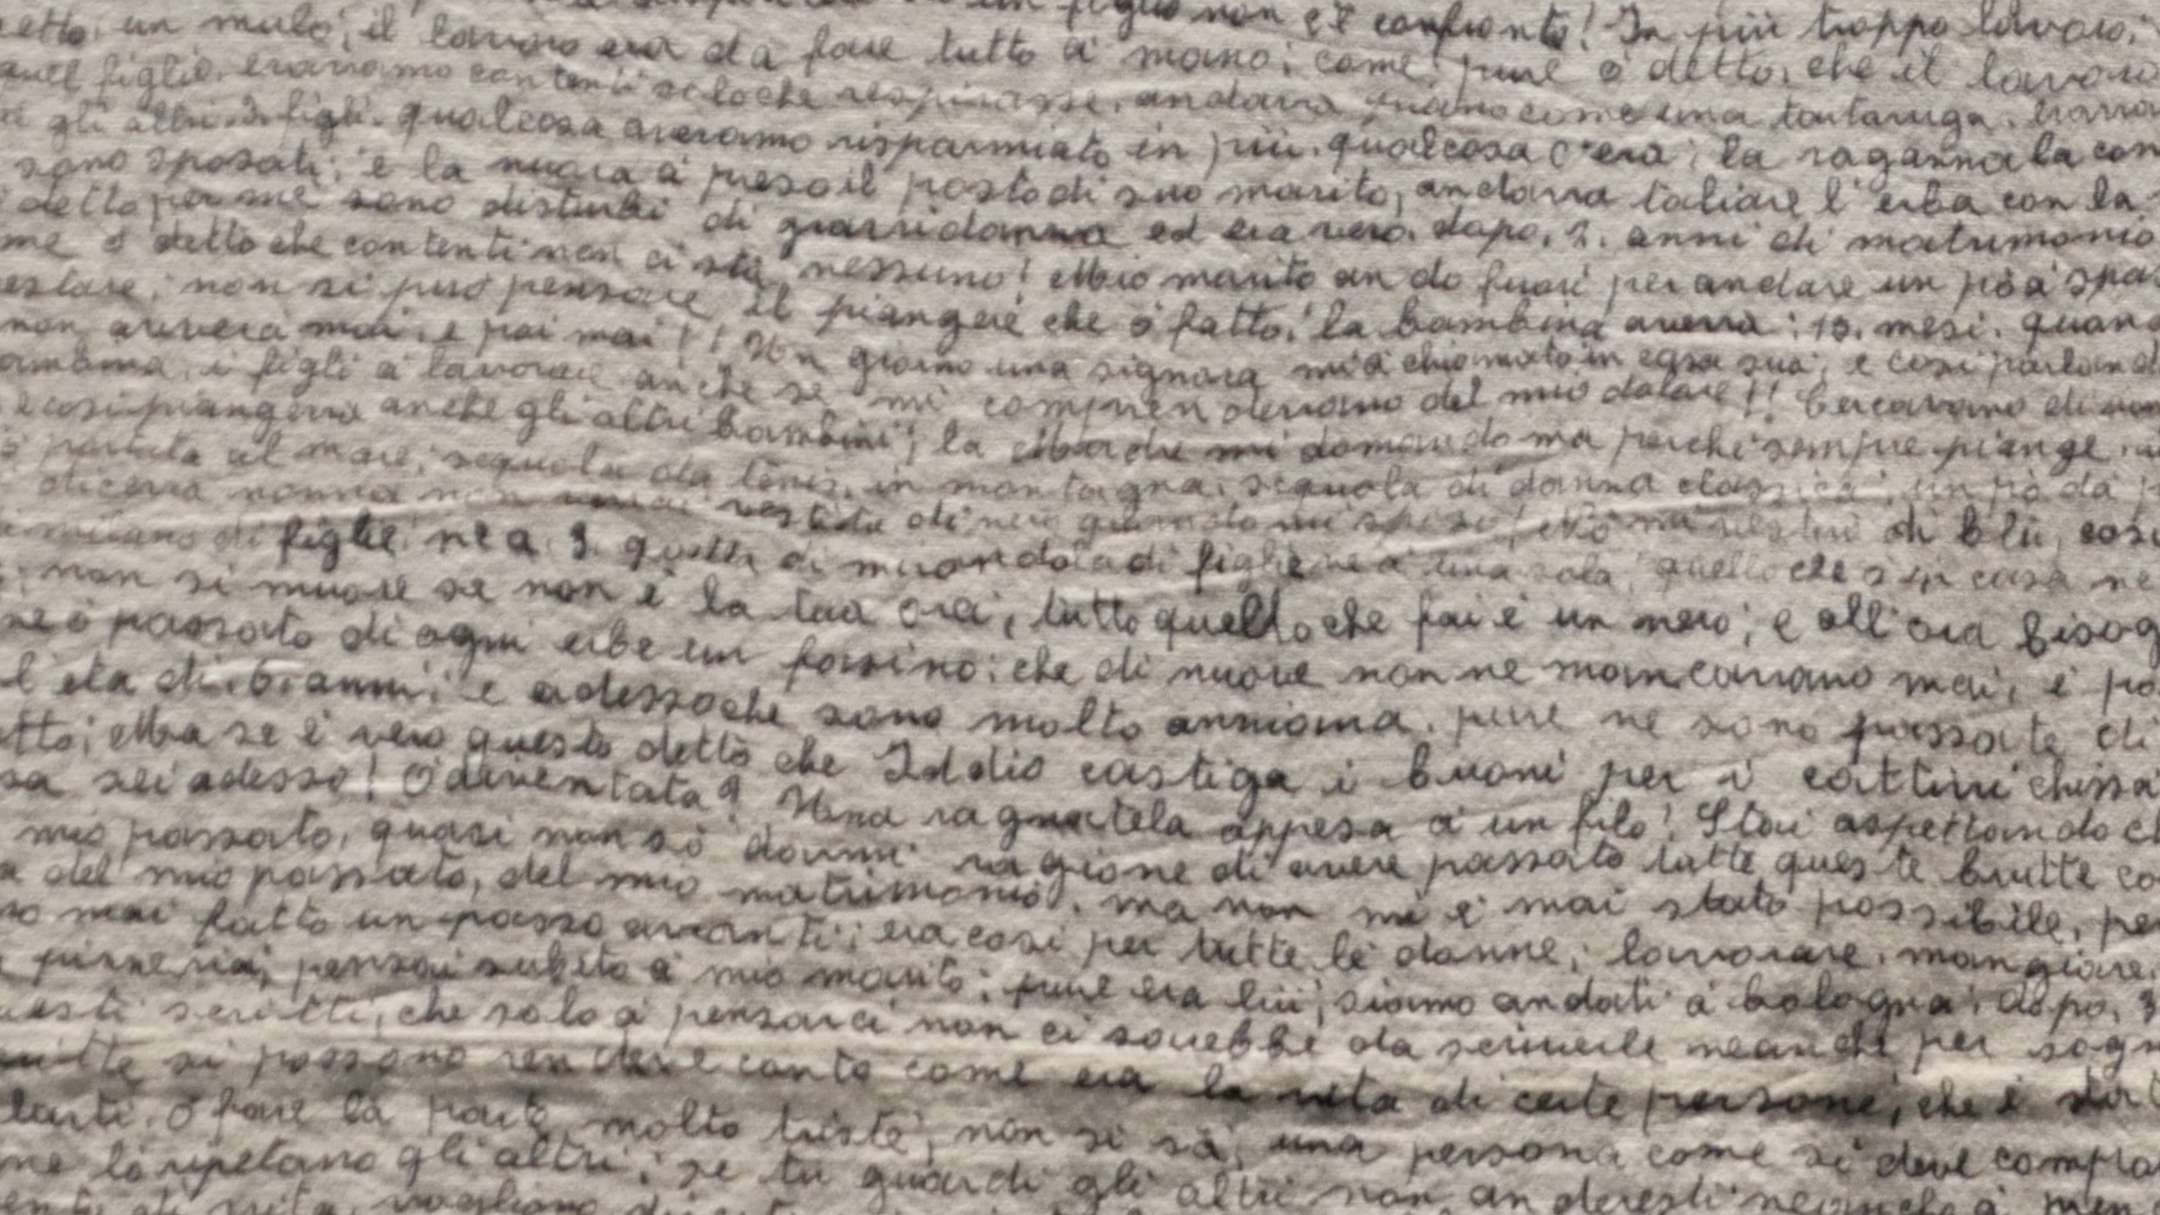 un figlio non c'è confronto! In più troppo lavoro;
etto, un mulo; il lavoro era da fare tutto à mano; come, pure ò detto, che il lavoro
quel figlio, eravamo contenti solo che respirasse, andava piano come una tartaruga.
gli altri figli. qualcosa avevamo risparmiato in più. qualcosa c'era; la raganna la con
sono sposati; e la nuora à preso il posto di suo marito, andava taliare l'erba con la
detto per me sono disturbi di gravidanna ed era vero. dopo, 2. anni di matrimonio
me ò detto che contenti non ci stà nessuno! Mio marito an do fuori per andare un pò à spa
estare; non si può pensare il piangere che ò fatto, la bambina aveva; 18. mesi. quan
non arivera mai, e poi mai!! Un giorno una signora mi à chiamato in casa sua; e così parland
i figli à lavorare anche se mi comprendevano del mio dolare!! Cercavamo di
e cosi piangeva anche gli altri bambini; la Madre mi domando ma perche sempre piange
partita al mare, seguela da tenis, in montagna; seguela di danna classica; un pò da
diceva nonna non vestita di nero quando mi di blù, cosi
figlie, ne a 3. quella di mirandola di figlie ne à una sola, quello che in casa ne
non si muore se non è la tua ora, tutto quello che fai è un nero; e all'ora bisog
ne ò passato di ogni erbe un fassino; che di nuove non ne mancavano mai, e po
l'eta di. 6. anni; e adesso che sono molto anniana. pure ne sono passate di
etto; Ma se è vero questo detto che Iddio castiga i buoni per i cattivi chissà
sa sei adesso! O diventata? Una ragnatela appesa à un filo! Stai aspettando ch
mio passato, quasi non sò darmi ragione di avere passato tutte queste brutte co
a del mio passato, del mio matrimonio. ma non mi è mai stato possibile, pe
so mai fatto un passo avanti; era cosi per tutte le donne; lavorare. mangiare.
pensai subito à mio marito; pure era lui; siamo andati à bologna; dopo, 3
uesti scritti, che solo à pensarci non ci sarebbe da scriverle neanche per sogn
si possono rendere conto come era la vita di certe persone; che è stat
ò fare la parte molto triste, non si sà, una persona come si deve compla
me lo ripetano gli altri; se tu guardi gli altri non anderesti neanche à men